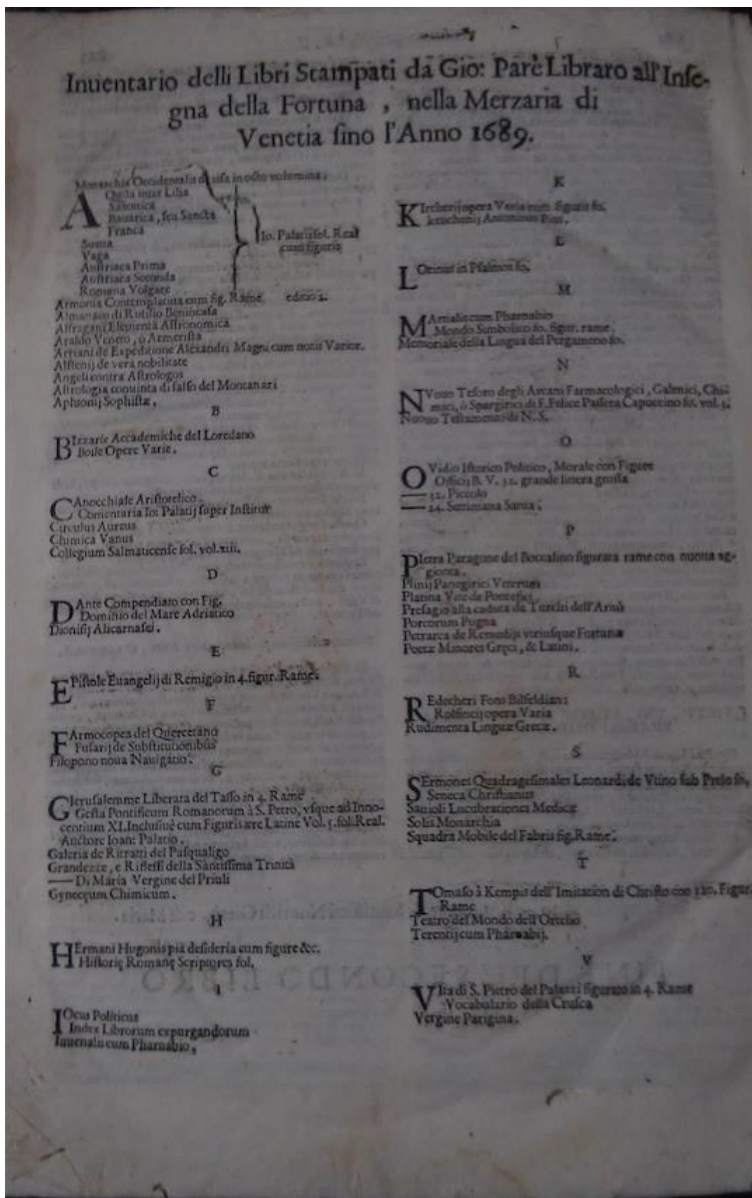 Inuentario delli Libri Stampati da Gio: Parè Libraro all'Inse-
gna della Fortuna, nella Merzaria di
Venetia sino l'Anno 1689.
Monarchia Occidentalis diuisa in octo volumina:
AQuila inter Lilia
Saxonica
Bauarica, seu Sancta
Franca
Sueua
Vaga
Austriaca Prima
Austriaca Secunda
Romana Volgare
Io. Palatij fol. Real
cum figuris
Armonia Contemplatiua cum fig. Rame editio 2.
Almanaco di Rutilio Benincasa
Alfragani Elementa Astronomica
Araldo Veneto, ò Armerista
Arriani de Expeditione Alexandri Magni cum notis Varior.
Alstenij de vera nobilitate
Angeli contra Astrologos
Astrologia conuinta di falso del Montanari
Aphtonij Sophistæ,
B
BIzzarie Accademiche del Loredano
Boile Opere Varie.
C
CAnocchiale Aristotelico
Comentaria Io: Palatij super Institut
Circulus Aureus
Chimica Vanus
Collegium Salmaticense fol. vol. xiii.
D
DAnte Compendiato con Fig.
Dominio del Mare Adriatico
Dionisij Alicarnasei.
E
EPistole Euangelij di Remigio in 4. figur. Rame.
F
FArmocopea del Quercetano
Fusarij de Substitutionibus
Filopono noua Nauigatio.
G
GIerusalemme Liberata del Tasso in 4. Rame
Gesta Pontificum Romanorum à S. Petro, vsque ad Inno-
centium XI. Inclusiuè cum Figuris ære Latine Vol. 5. fol: Real.
Auctore Ioan: Palatio.
Galeria de Ritratti del Pasqualigo
Grandezze, e Riflessi della Santissima Trinità
—— Di Maria Vergine del Priuli
Gyneceum Chimicum.
H
HErmani Hugonis pia desideria cum figure &c.
Historię Romanę Scriptores fol.
I
IOcus Politicus
Index Librorum expurgandorum
Iuuenalis cum Pharnabio,
K
KIrcherij opera Varia cum figuris fo.
kenchenij Antoninus Pius.
L
LOrinus in Psalmos fo.
M
MArtialis cum Pharnabio
Mondo Simbolico fo. figur. rame.
Memoriale della Lingua del Pergameno fo.
N
NVouo Tesoro degli Arcani Farmacologici, Galenici, Chi-
mici, ò Spargirici di F. Felice Passera Capuccino fo. vol. 5.
Nuouo Testamento di N. S.
O
OVidio Istorico Politico, Morale con Figure
Officij B. V. 32. grande littera grossa
—— 32. Piccolo
—— 24. Settimana Santa.
P
PIetra Paragone del Boccalino figurata rame con nuoua ag-
gionta.
Plinij Panegirici Veterum
Platina Vite de Pontefici
Presagio alla caduta da Turchi dell'Arnù
Porcorum Pugna
Petrarca de Remedijs vtriusque Fortunæ
Poetæ Minores Gręci, & Latini.
R
REdecheri Fons Bilfeldian:
Rolfincij opera Varia
Rudimenta Linguæ Grecæ.
S
SErmones Quadragesimales Leonardi de Vtino sub Prelo fo.
Seneca Christianus
Lucubrationes Medicæ
Solis Monarchia
Squadra Mobile del Fabris fig. Rame.
T
TOmaso à Kempis dell'Imitation di Christo con 120. Figur.
Rame
Teatro del Mondo dell'Ortelio
Terentij cum Pharnabij.
V
VIta di S. Pietro del Palazzi figurato in 4. Rame
Vocabulario della Crusca
Vergine Parigina.